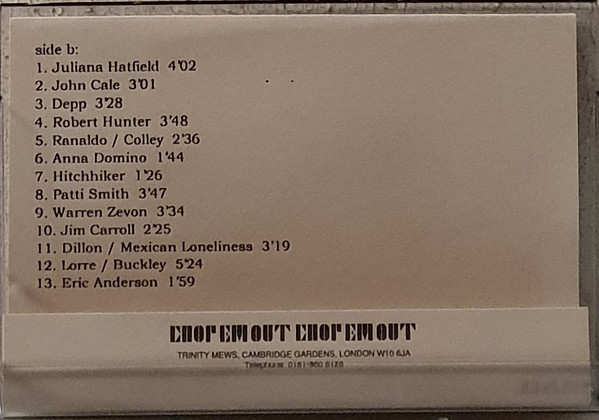 side b:
1. Juliana Hatfield 4'02
2. John Cale 3'01
3. Depp 3'28
4. Robert Hunter 3'48
5. Ranaldo / Colley 2'36
6. Anna Domino 1'44
7. Hitchhiker 1'26
8. Patti Smith 3'47
9. Warren Zevon 3'34
10. Jim Carroll 2'25
11. Dillon / Mexican Loneliness 3'19
12. Lorre / Buckley 5'24
13. Eric Anderson 1'59
CHOP EM OUT CHOP EM OUT
TRINITY MEWS, CAMBRIDGE GARDENS, LONDON W10 6JA
Telephone 0181-960